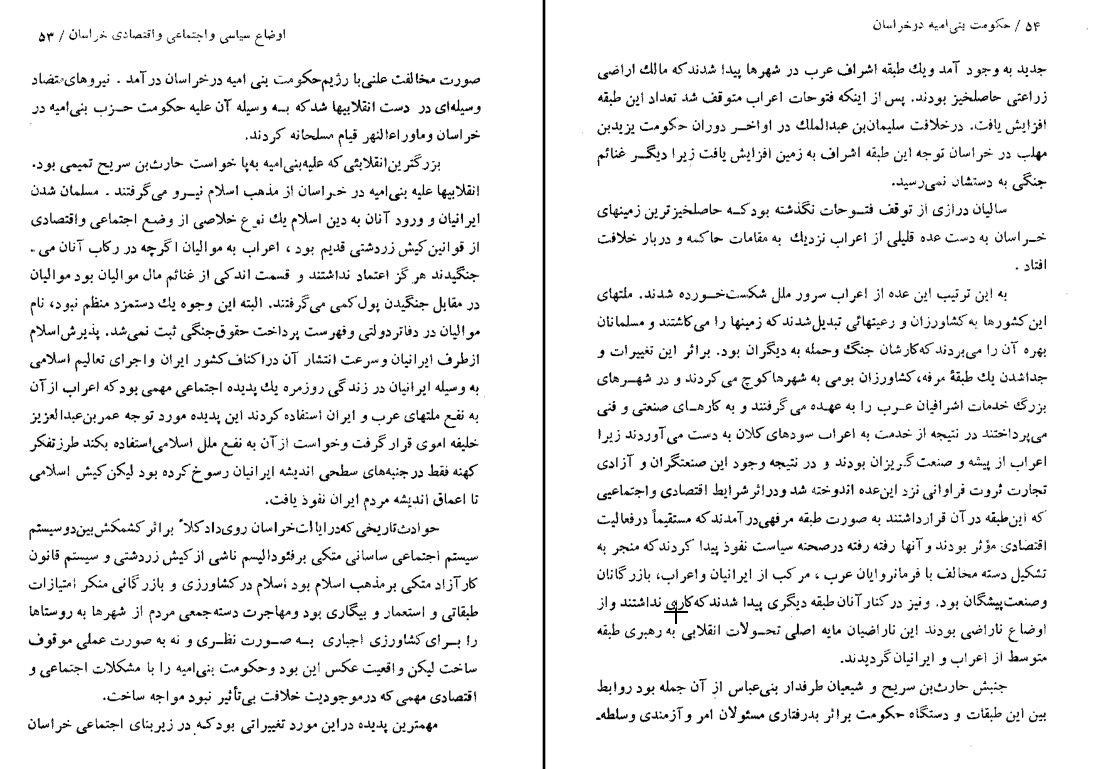 اوضاع سیاسی واجتماعی واقتصادی خراسان / ۵۳
صورت مخالفت علنی با رژیم حکومت بنی امیه درخراسان در آمد . نیروهای متضاد
وسیله‌ای در دست انقلابیها شد که بـه وسیله آن علیه حکومت حـزب بنی‌امیه در
خراسان وماوراءالنهر قیام مسلحانه کردند.
بزرگترین انقلابی که علیه بنی‌امیه به‌پا خواست حارث‌بن سریح تمیمی بود.
انقلابیها علیه بنی‌امیه در خراسان از مذهب اسلام نیـرو می‌گرفتند . مسلمان شدن
ایرانیان و ورود آنان به دین اسلام یك نوع خلاصی از وضع اجتماعی واقتصادی
از قوانین کیش زردشتی قدیم بود ، اعراب به موالیان اگرچه در رکاب آنان می ـ
جنگیدند هرگز اعتماد نداشتند و قسمت اندکی از غنائم مال موالیان بود موالیان
در مقابل جنگیدن پول کمی می‌گرفتند. البته این وجوه یك دستمزد منظم نبود، نام
موالیان در دفاتر دولتی وفهرست پرداخت حقوق جنگی ثبت نمی‌شد. پذیرش اسلام
ازطرف ایرانیان وسرعت انتشار آن دراکناف کشور ایران واجرای تعالیم اسلامی
به وسیله ایرانیان در زندگی روزمره یك پدیده اجتماعی مهمی بود که اعراب از آن
به نفع ملتهای عرب و ایران استفاده کردند این پدیده مورد توجه عمربن‌عبدالعزیز
خلیفه اموی قرار گرفت وخواست از آن به نفع ملل اسلامی استفاده بکند طرز تفکر
کهنه فقط در جنبه‌های سطحی اندیشه ایرانیان رسوخ کرده بود لیکن کیش اسلامی
تا اعماق اندیشه مردم ایران نفوذ یافت.
حوادث تاریخی که در ایالات خراسان روی داد کلاً براثر کشمکش بین دو سیستم
سیستم اجتماعی ساسانی متکی برفئودالیسم ناشی از کیش زردشتی و سیستم قانون
کار آزاد متکی برمذهب اسلام بود اسلام در کشاورزی و بازرگانی منکر امتیازات
طبقاتی و استعمار و بیگاری بود ومهاجرت دسته‌جمعی مردم از شهرها به روستاها
را بـرای کشاورزی اجباری بـه صـورت نظـری و نه به صورت عملی موقوف
ساخت لیکن واقعیت عکس این بود وحکومت بنی‌امیه را با مشکلات اجتماعی و
اقتصادی مهمی که درموجودیت خلافت بی‌تأثیر نبود مواجه ساخت.
مهمترین پدیده دراین مورد تغییراتی بود کـه در زیربنای اجتماعی خراسان
۵۴ / حکومت بنی‌امیه در خراسان
جدید به وجود آمد ویك طبقه اشراف عرب در شهرها پیدا شدند که مالك اراضی
زراعتی حاصلخیز بودند. پس از اینکه فتوحات اعراب متوقف شد تعداد این طبقه
افزایش یافت. درخلافت سلیمان‌بن عبدالملك در اواخـر دوران حکومت یزیدبن
مهلب در خراسان توجه این طبقه اشراف به زمین افزایش یافت زیرا دیگـر غنائم
جنگی به دستشان نمی‌رسید.
سالیان درازی از توقف فتـوحات نگذشته بود کـه حاصلخیزترین زمینهای
خـراسان به دست عده قلیلی از اعراب نزدیك به مقامات حاکمه و دربار خلافت
افتاد .
به این ترتیب این عده از اعراب سرور ملل شکست‌خـورده شدند. ملتهای
این کشورها به کشاورزان و رعیتهائی تبدیل شدند که زمینها را می‌کاشتند و مسلمانان
بهره آن را می‌بردند که کارشان جنگ وحمله به دیگران بود. براثر این تغییرات و
جداشدن یك طبقهٔ مرفه، کشاورزان بومی به شهرها کوچ می‌کردند و در شهـرهای
بزرگ خدمات اشرافیان عـرب را به عهـده می‌گرفتند و به کارهـای صنعتی و فنی
می‌پرداختند در نتیجه از خدمت به اعراب سودهای کلان به دست می‌آوردند زیرا
اعراب از پیشه و صنعت گـریزان بودند و در نتیجه وجود این صنعتگران و آزادی
تجارت ثروت فراوانی نزد این عده اندوخته شد ودراثر شرایط اقتصادی واجتماعیی
که این طبقه در آن قرار داشتند به صورت طبقه مرفهی در آمدند که مستقیماً درفعالیت
اقتصادی مؤثر بودند و آنها رفته رفته درصحنه سیاست نفوذ پیدا کردند که منجر به
تشکیل دسته مخالف با فرمانروایان عرب ، مرکب از ایرانیان واعراب، بازرگانان
وصنعت‌پیشگان بود. ونیز در کنار آنان طبقه دیگری پیدا شدند که کاری نداشتند و از
اوضاع ناراضی بودند این ناراضیان مایه اصلی تحـولات انقلابی به رهبری طبقه
متوسط از اعراب و ایرانیان گردیدند.
جنبش حارث‌بن سریح و شیعیان طرفدار بنی‌عباس از آن جمله بود روابط
بین این طبقات و دستگاه حکومت براثر بدرفتاری مسئولان امر و آزمندی وسلطه‌ـ